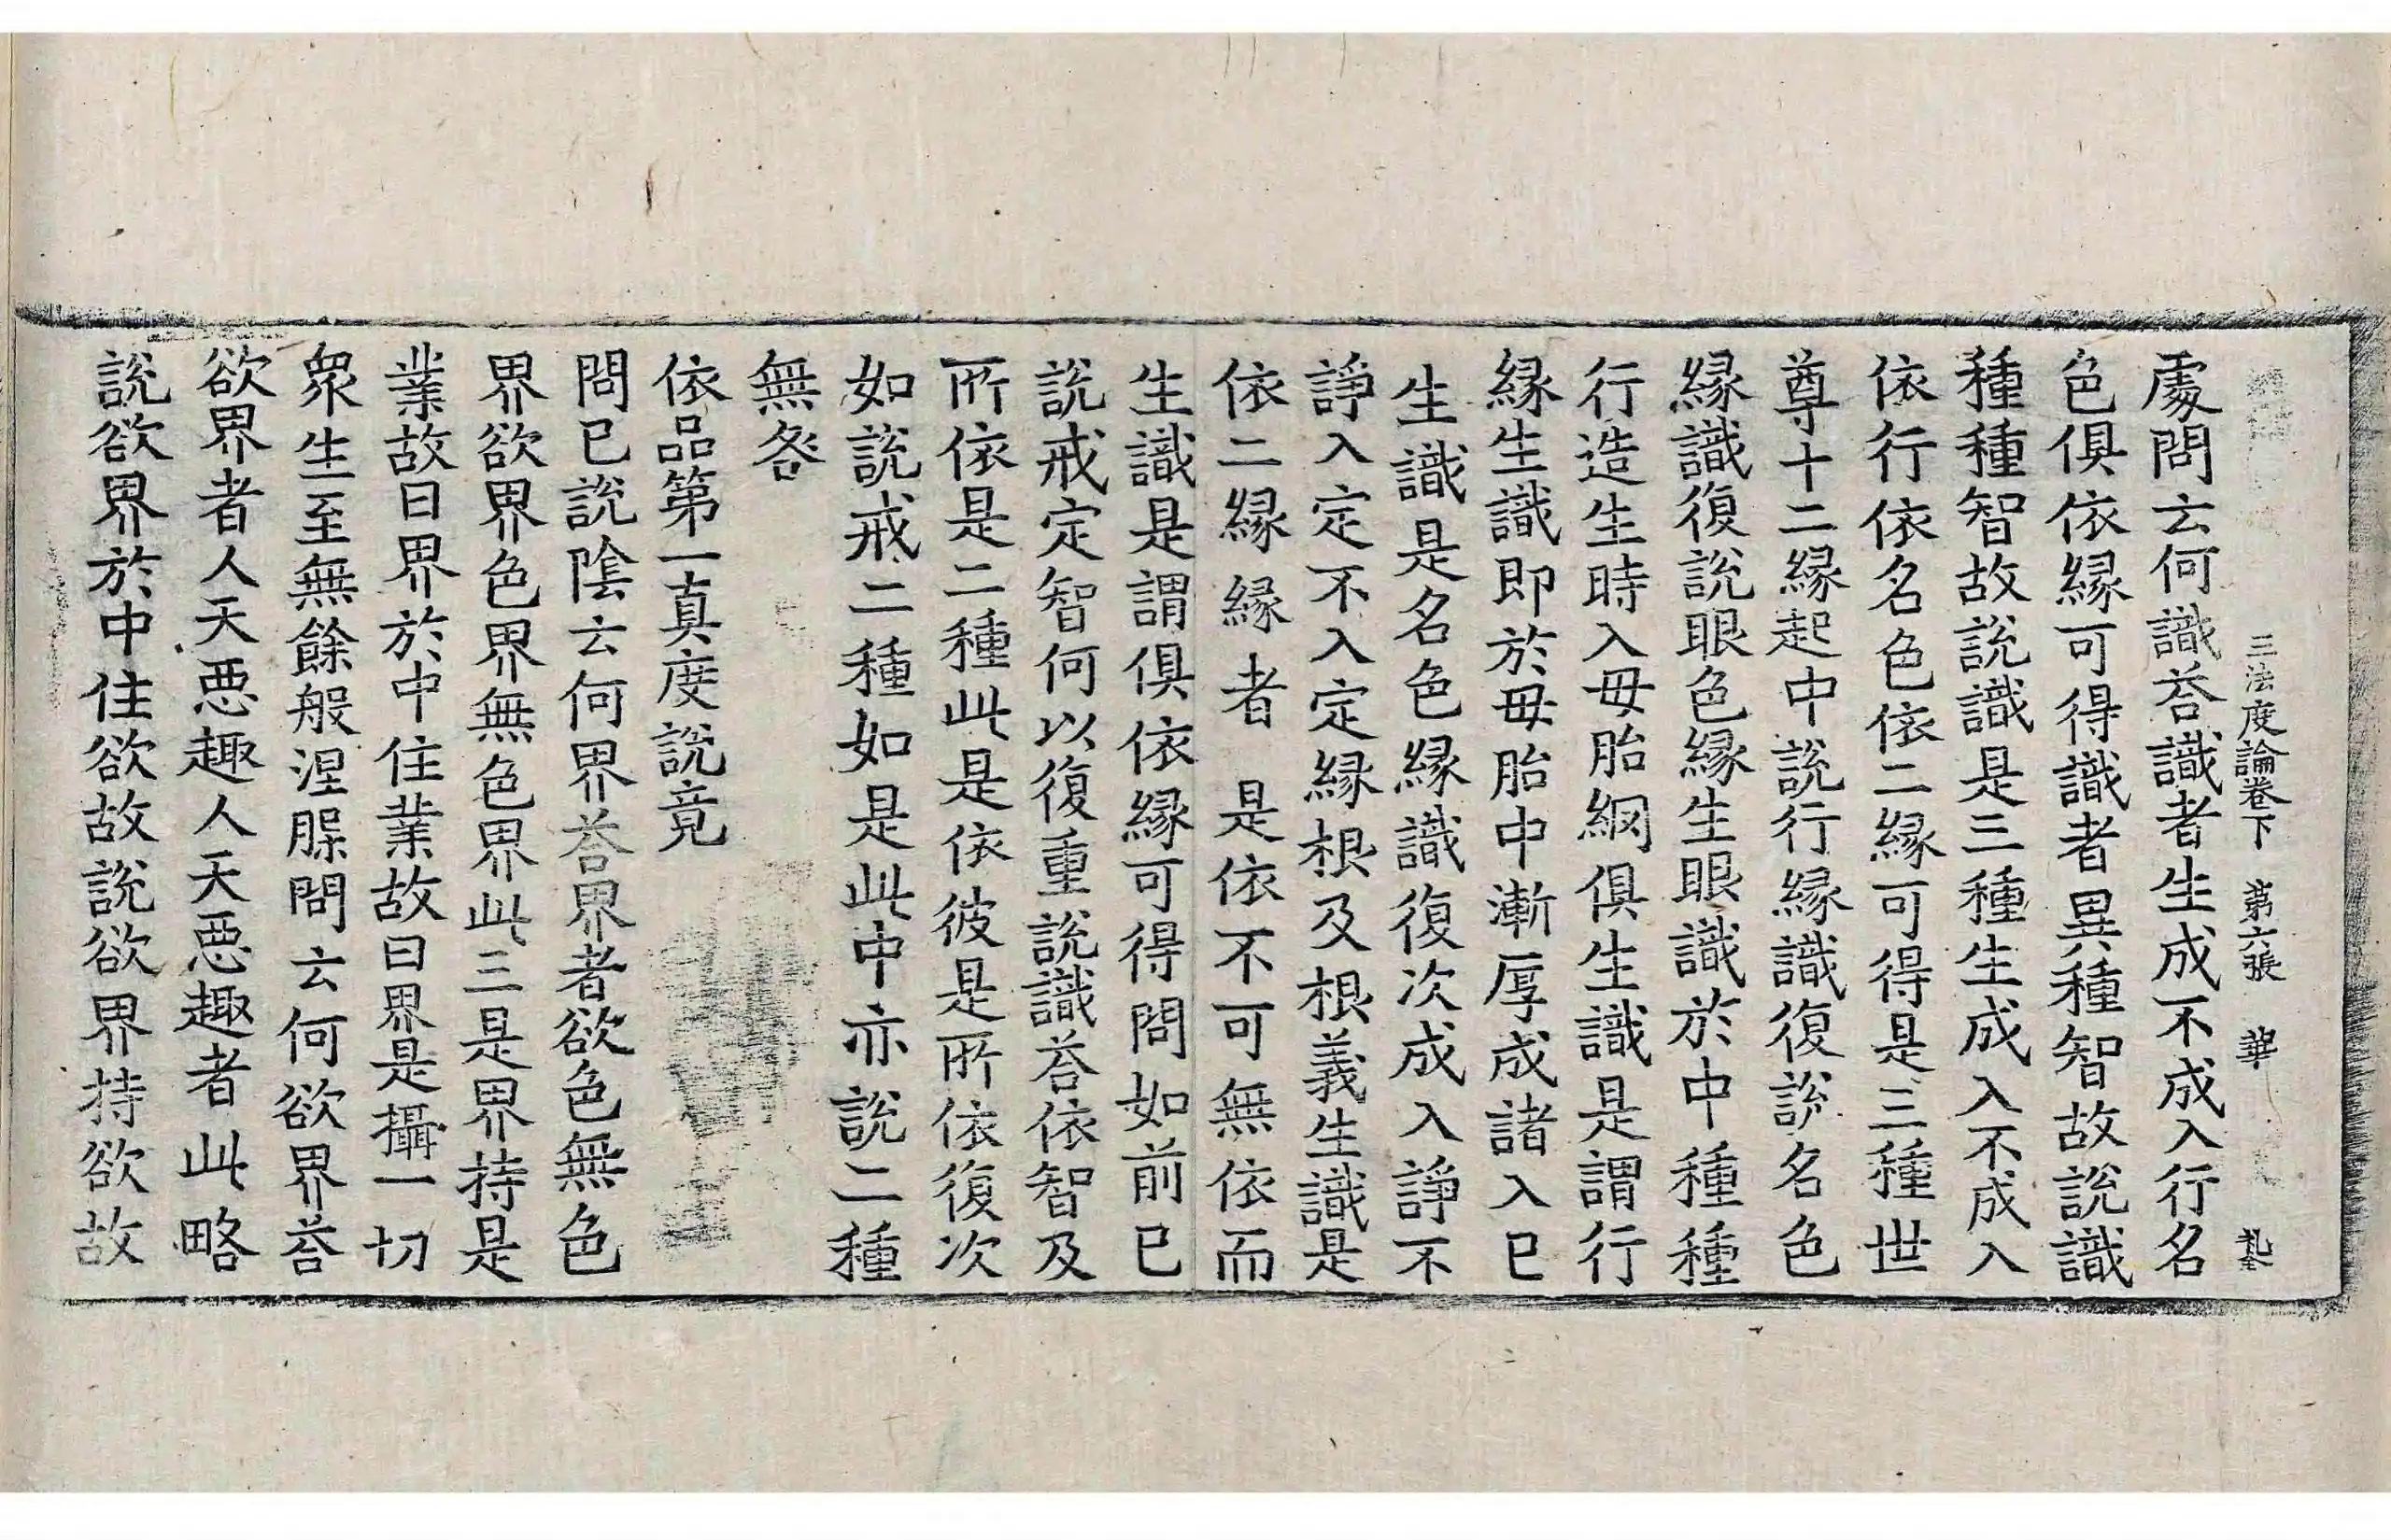 三法度論卷下 第六張 華
處問云何識荅識者生成不成入行名
色俱依縁可得識者異種智故説識
種種智故説識是三種生成入不成入
依行依名色依二縁可得是三種世
尊十二縁起中説行縁識復説名色
縁識復説眼色縁生眼識於中種種
行造生時入毋胎網俱生識是謂行
縁生識即於毋胎中漸厚成諸入巳
生識是名色縁識復次成入諍不
諍入定不入定縁根及根義生識是
依二縁縁者是依不可無依而
生識是謂俱依縁可得問如前巳
説戒定智何以復重説識荅依智及
所依是二種此是依彼是所依復次
如説戒二種如是此中亦説二種
無咎
依品第一真度説竟
問已説陰云何界荅界者欲色無色
界欲界色界無色界此三是界持是
業故曰界於中住業故曰界是攝一切
衆生至無餘般涅槃問云何欲界荅
欲界者人天惡趣人天惡趣者此略
説欲界於中住欲故説欲界持欲故